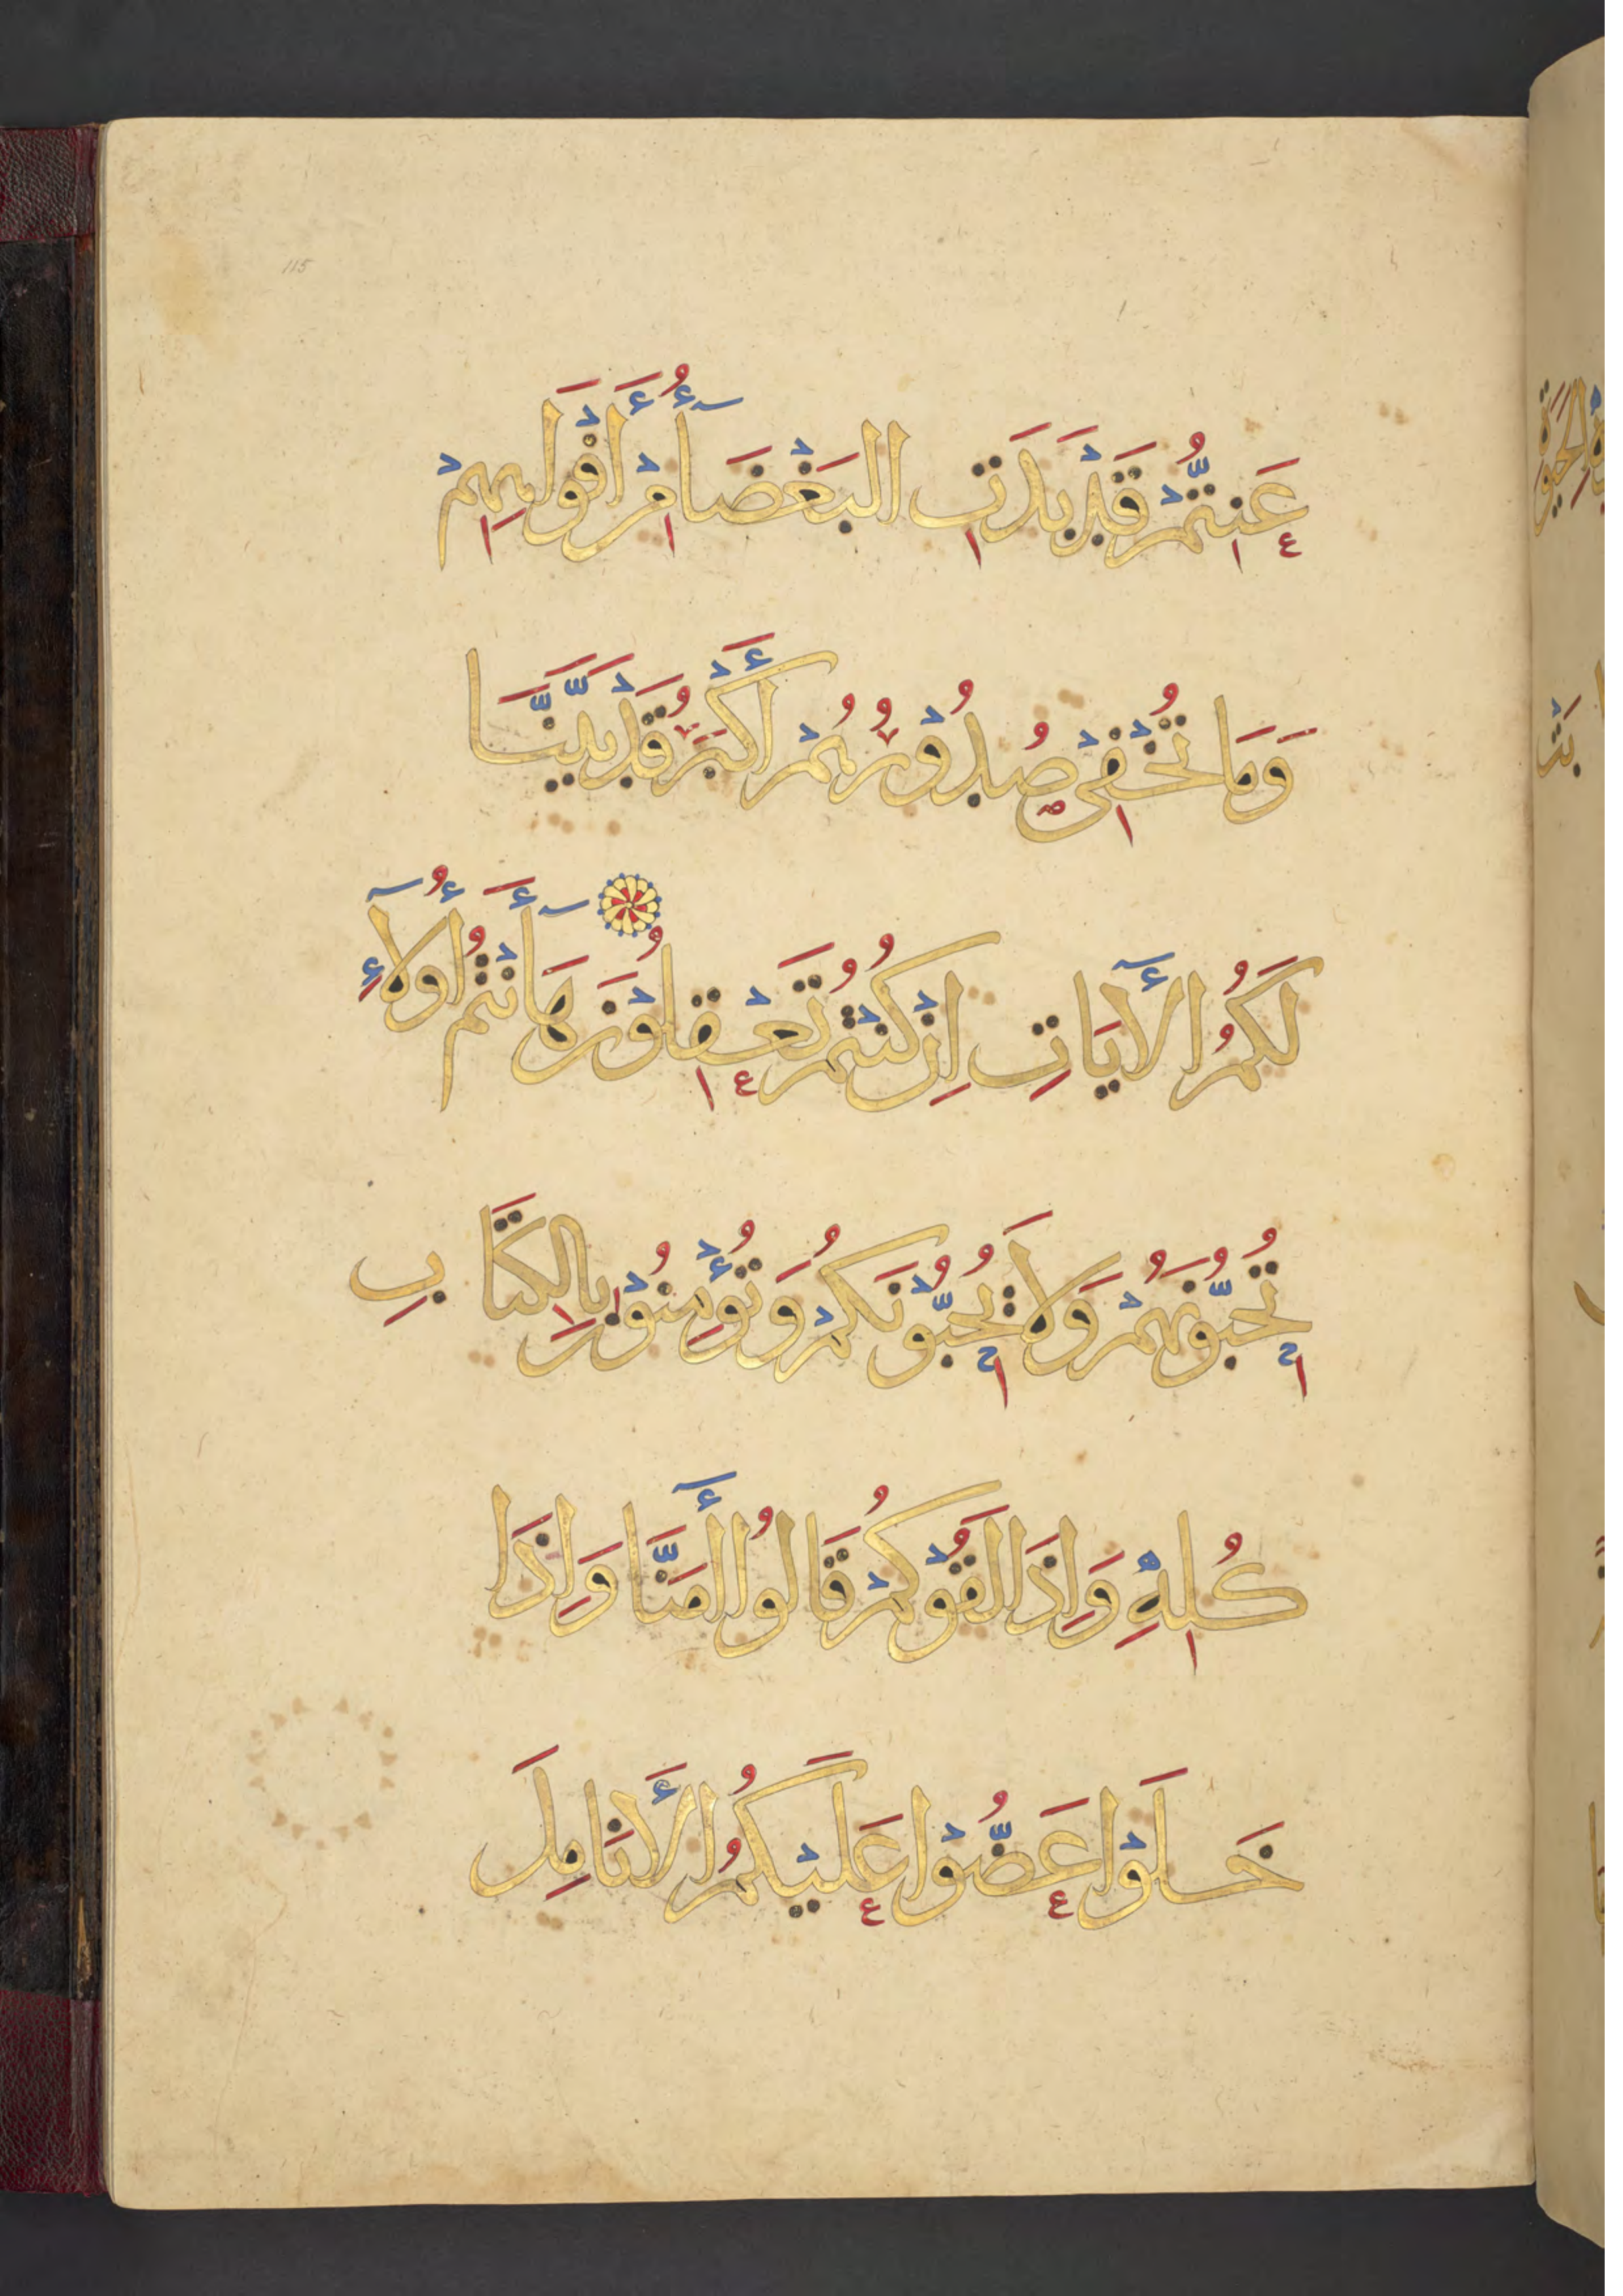 115
عَنِتُّمْ قَدْ بَدَتِ البَغْضَاءُ مِنْ أَفْوَاهِهِمْ
وَمَا تُخْفِي صُدُوْرُهُمْ أَكْبَرُ قَدْ بَيَّنَّا
لَكُمُ الأَيَاتِ اِنْ كُنْتُمْ تَعْقِلُوْنَ هَا أَنْتُمْ أُولاَءِ
تُحِبُّوْنَهُمْ وَلاَ تُحِبُّوْنَكُمْ وَتُؤْمِنُوْنَ بِالكِتَابِ
كُلِّهِ وَاِذَا لَقُوْكُمْ قَالُوا أَمَنَّا وَاِذَا
خَلَوْا عَضُّوْا عَلَيْكُمُ الأَنَامِلَ